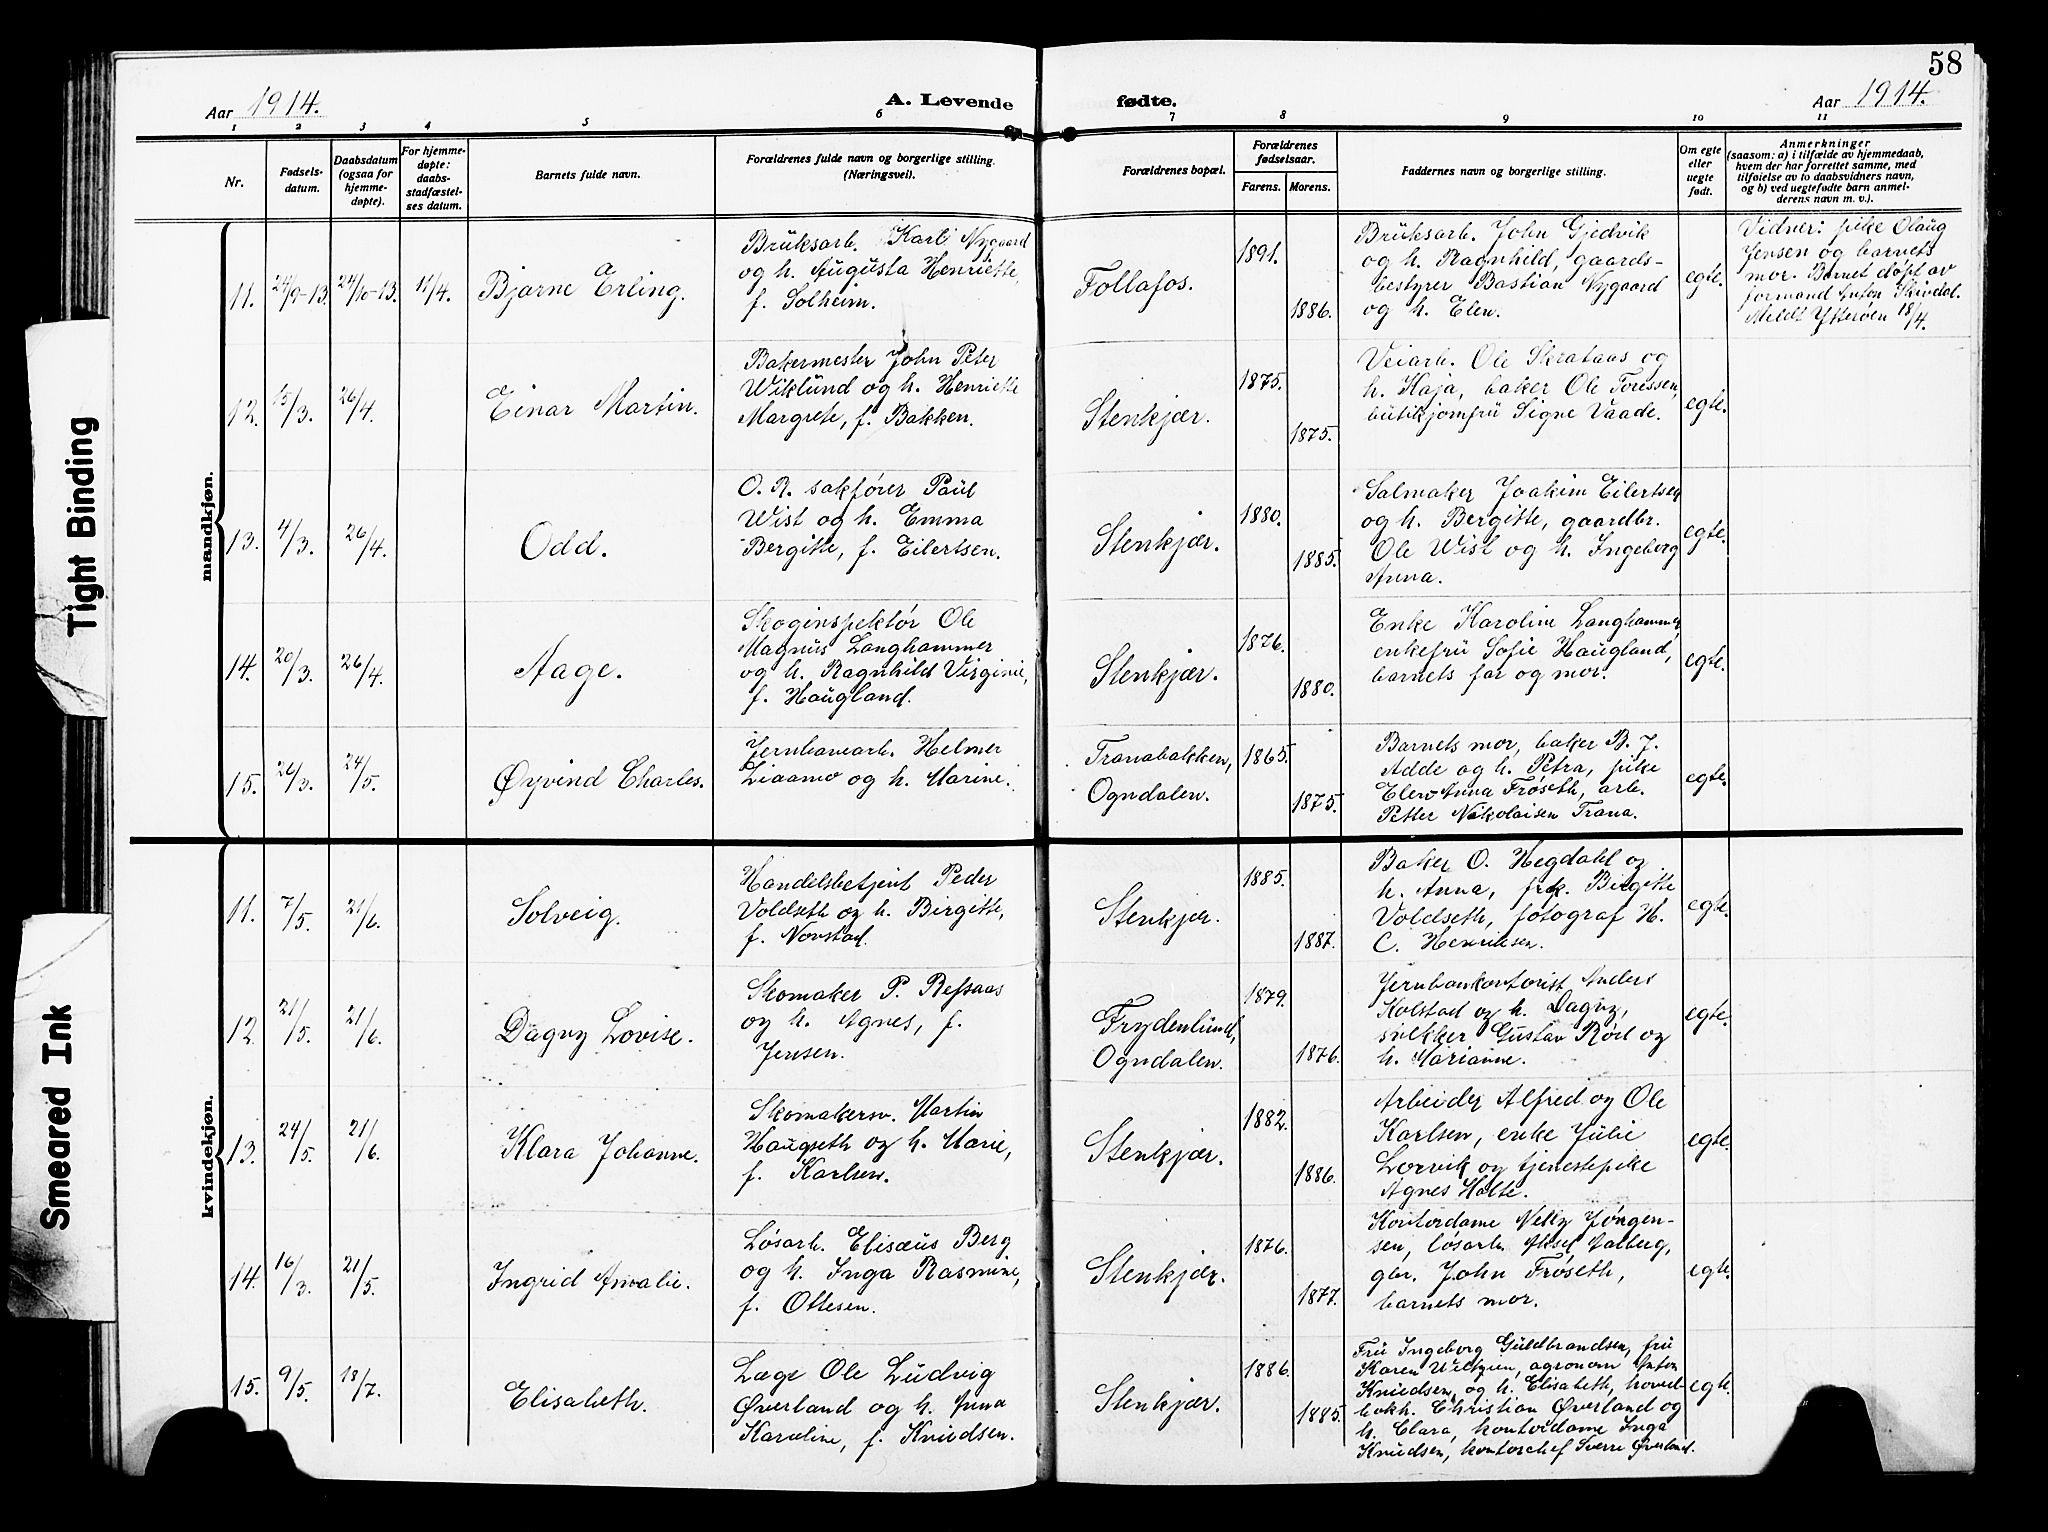 58
Aar 1914.
A. Levende
fødte.
Aar 1914.
1 2 3 4 5 6 7 8 9 10 11
Nr.
Fødsels-
datum.
Daabsdatum
(ogsaa for
hjemme-
døpte).
For hjemme-
døpte:
daabs-
stadfæstel-
ses datum.
Barnets fulde navn.
Forældrenes fulde navn og borgerlige stilling.
(Næringsvei).
Forældrenes bopæl.
Forældrenes
fødselsaar.
Farens. Morens.
Faddernes navn og borgerlige stilling.
Om egte
eller
uegte
født.
Anmerkninger
(saasom: a) i tilfælde av hjemmedaab,
hvem der har forrettet samme, med
tilføielse av to daabsvidners navn,
og b) ved uegtefødte barn anmel-
derens navn m. v.).
mandkjøn.
11. 24/9-13. 24/10-13. 11/4.
Bjarne Erling.
Brüksarb. Karl Nygaard
og h. Augusta Henriette,
f. Solheim.
Follafos.
1891.
1886.
Brüksarb. John Gjedvik
og h. Ragnhild, gaards-
bestyrer Bastian Nygaard
og h. Elen.
egte.
Vidner: pike Olaug
Jensen og barnets
mor. Barnet døpt av
formand Anton Skivdal.
Meldt Ytterøen 18/4.
12. 15/3. 26/4.
Einar Martin.
Bakermester John Peter
Wiklünd og h. Henriette
Margrete, f. Bakken.
Stenkjær.
1875.
1875.
Veiarb. Ole Skrataas og
h. Kaja, baker Ole Foressen,
bütikjomfrü Signe Vaade.
egte.
13. 4/3. 26/4.
Odd.
O. R. sakfører Paül
Wist og h. Emma
Bergitte, f. Eilertsen.
Stenkjær.
1880.
1885.
Salmaker Joakim Eilertsen
og h. Bergitte, gaardbr.
Ole Wist og h. Ingeborg
Anna.
egte.
14. 20/3. 26/4.
Aage.
Skoginspektør Ole
Magnüs Langhammer
og h. Ragnhild Virginie,
f. Haügland.
Stenkjær.
1876.
1880.
Enke Karoline Langhammer,
enkefrü Sofie Haügland,
barnets far og mor.
egte.
15. 26/3. 24/5.
Øyvind Charles.
Jernbanearb. Helmer
Liaamo og h. Marine.
Tranabakken,
Ogndalen.
1865.
1875.
Barnets mor, baker B. J.
Adde og h. Petra, pike
Elen Anna Frøseth, arb.
Petter Nikolaisen Trana.
egte.
kvindekjøn.
11. 7/5. 21/6.
Solveig.
Handelsbetjent Peder
Voldseth og h. Birgitte,
f. Norstad.
Stenkjær.
1885.
1887.
Baker O. Hegdahl og
h. Anna, frk. Birgitte
Voldseth, fotograf H.
C. Henriksen.
egte.
12. 21/5. 21/6.
Dagny Lovise.
Skomaker P. Ressaas
og h. Agnes, f.
Jensen.
Frydenlünd,
Ogndalen.
1879.
1876.
Jernbankontorist Anders
Kolstad og h. Dagny,
snekker Güstav Røil og
h. Marianne.
egte.
13. 24/5. 21/6.
Klara Johanne.
Skomakersv. Martin
Haügseth og h. Marie,
f. Karlsen.
Stenkjær.
1882.
1886.
Arbeider Alfred og Ole
Karlsen, enke Jülie
Lorvik og tjenestepike
Agnes Holte.
egte.
14. 16/3. 21/5.
Ingrid Amalie.
Løsarb. Elisæüs Berg
og h. Inga Rasmine,
f. Ottesen.
Stenkjær.
1876.
1877.
Kontordame Nelly Jørgen-
sen, løsarb. Aksel Aalberg,
gbr. John Frøseth,
barnets mor.
egte.
15. 9/5. 18/7.
Elisabeth.
Læge Ole Lüdvig
Øverland og h. Anna
Karoline, f. Knüdsen.
Stenkjær.
1886.
1885.
Frü Ingeborg Güldbrandsen, frü
Karen, agronom Anton
Knüdsen, og h. Elisabeth, hoved-
bokh. Christian Øverland og
h. Clara, kontordame Inga
Knüdsen, kontorchef Sverre Øverland.
egte.
Tight Binding
Smeared Ink